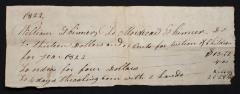 1822
William Skinner To Mordecai Skinner Dr
to thirteen Dollars and 51 Cents for tuition of Children
for year 1822 $13.51
to order for four Dollars 4.00
to 4 days threshing corn with 2 hands